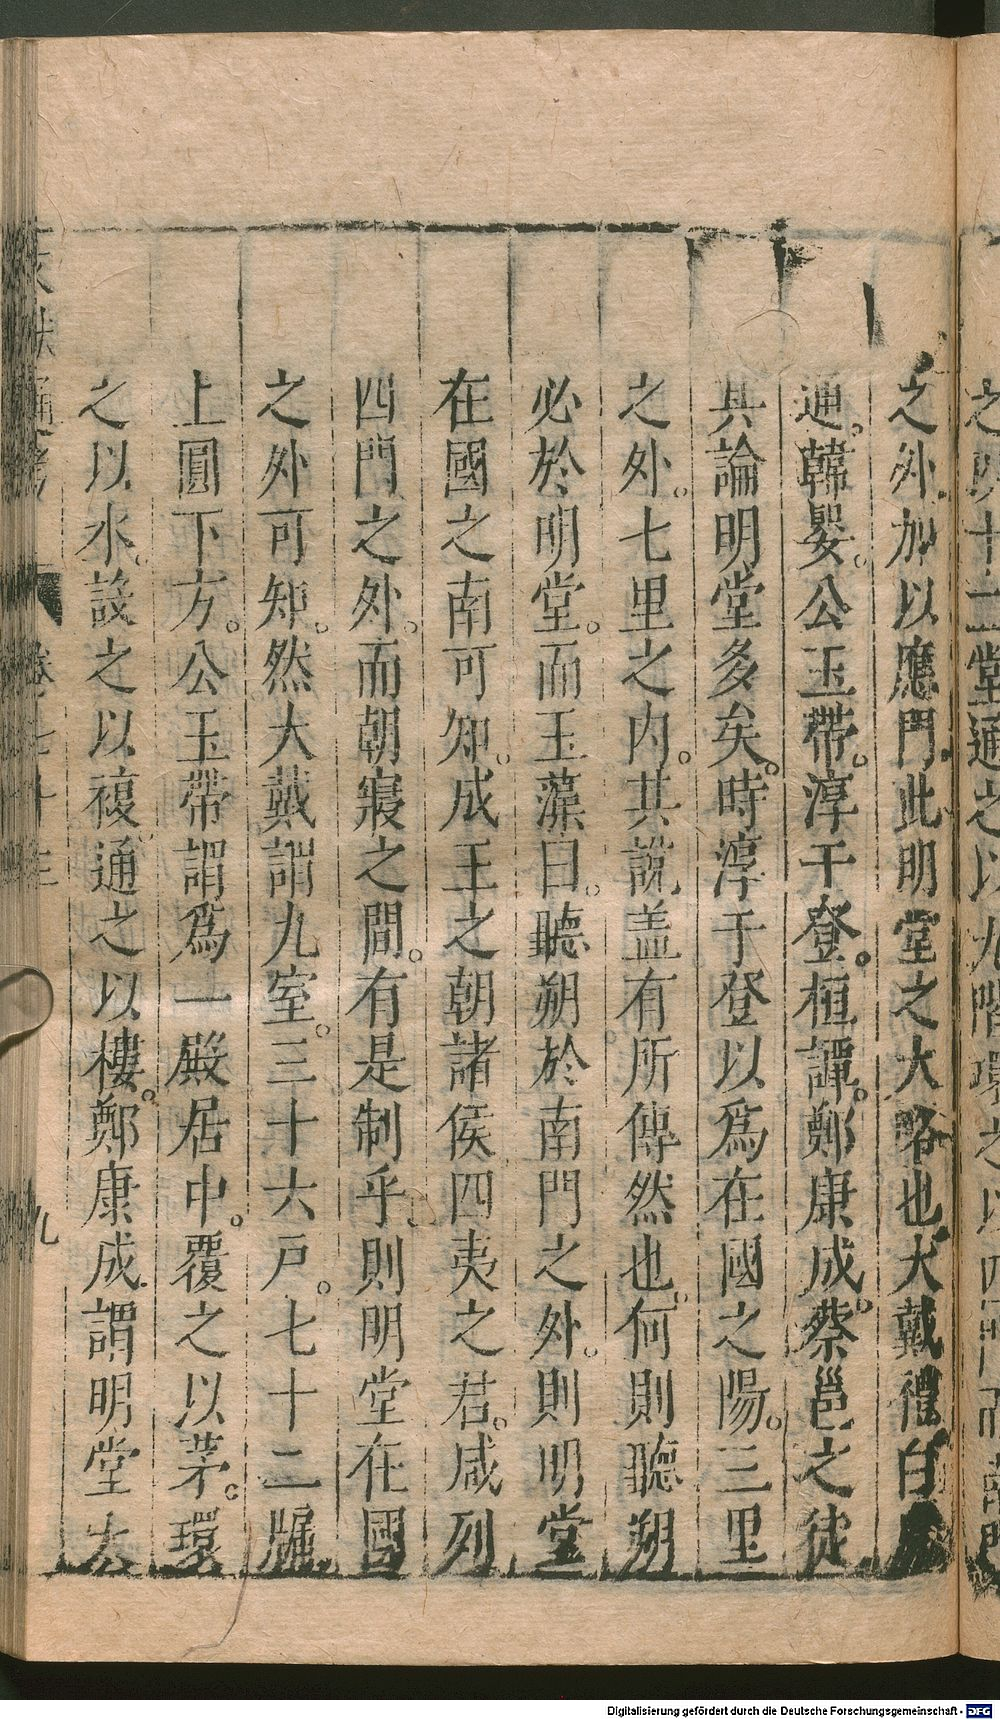 之外加以應門此明堂之大略也大戴禮白虎
通。韓嬰。公玉帶。淳于登。桓譚。鄭康成。蔡邕之徒
其論明堂多矣。時淳于登以爲在國之陽。三里
之外。七里之內。其說盖有所傳然也。何則聽朔
必於明堂。而玉藻曰。聽朔於南門之外。則明堂
在國之南可知。成王之朝諸侯四夷之君。咸列
四門之外。而朝寢之間。有是制乎。則明堂在國
之外可知。然大戴謂九室。三十六戸。七十二牖
上圓下方。公玉帶謂爲一殿居中。覆之以茅。環
之以水。設之以複通之以樓。鄭康成謂明堂太
通考
卷七十三
九
Digitalisierung gefördert durch die Deutsche Forschungsgemeinschaft - DFG